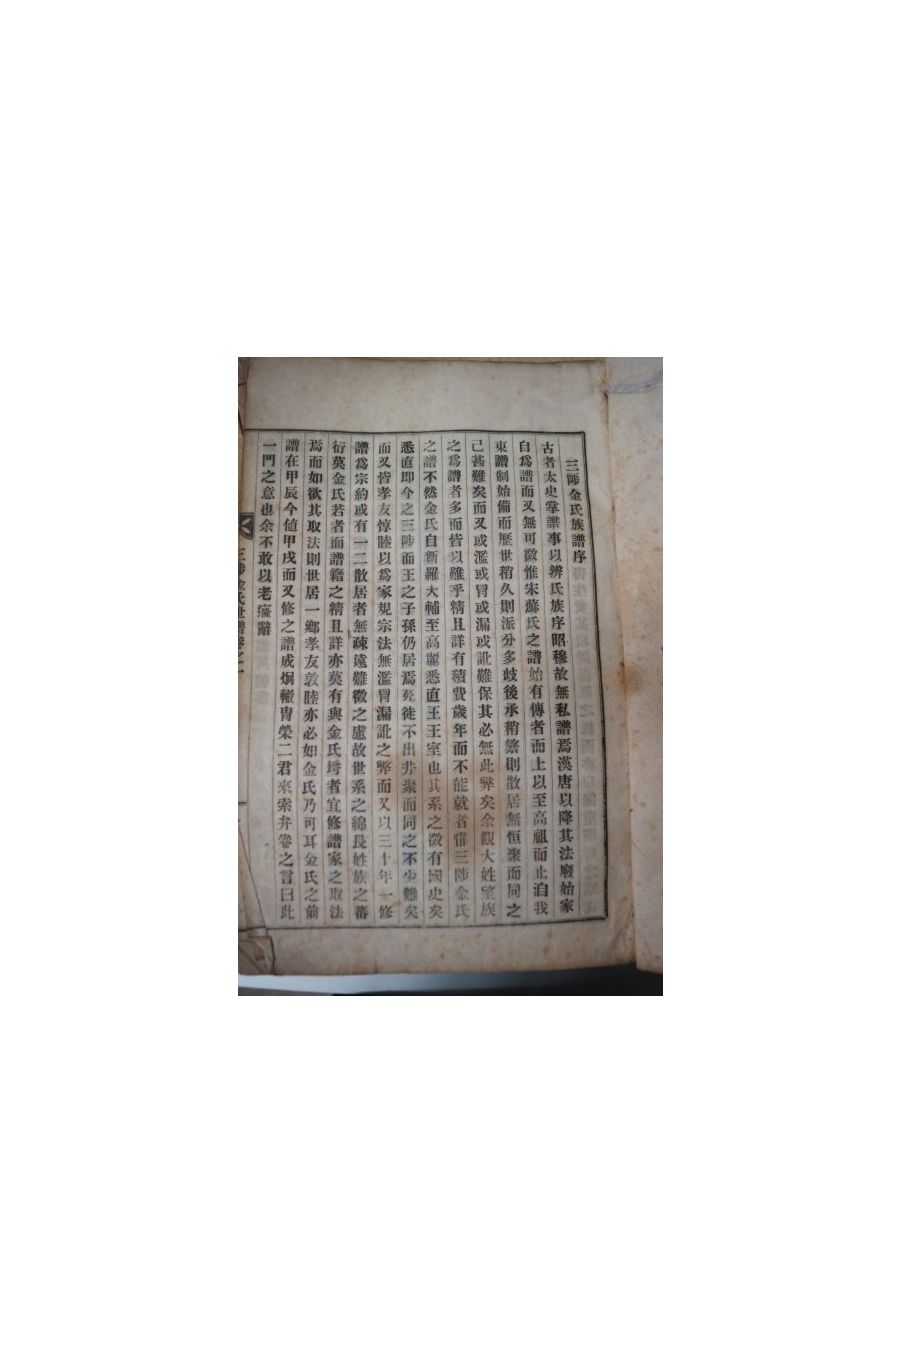 三陟金氏族譜序
古者太史掌譜事以辨氏族序昭穆故無私譜焉漢唐以降其法廢始家
自爲譜而又無可徵惟宋蘇氏之譜始有傳者而上以至高祖而止自我
東譜制始備而歷世稍久則派分多歧後承稍繁則散居無恒聚而同之
已甚難矣而又或濫或冒或漏或訛難保其必無此弊矣余觀大姓望族
之爲譜者多而皆以難乎精且詳有積費歲年而不能就者惟三陟金氏
之譜不然金氏自新羅大輔至高麗悉直王王室也其系之徵有國史矣
悉直即今之三陟而王之子孫仍居焉死徙不出井聚而同之不少難矣
而又皆孝友惇睦以爲家規宗法無濫冒漏訛之弊而又以三十年一修
譜爲宗約或有一二散居者無疎遠難徵之慮故世系之綿長姓族之蕃
衍莫金氏若者而譜籍之精且詳亦莫有與金氏埒者宜修譜家之取法
焉而如欲其取法則世居一鄕孝友敦睦亦必如金氏乃可耳金氏之前
譜在甲辰今値甲戌而又修之譜成炯轍冑榮二君來索弁卷之言曰此
一門之意也余不敢以老癃辭
三陟金氏世譜卷之一